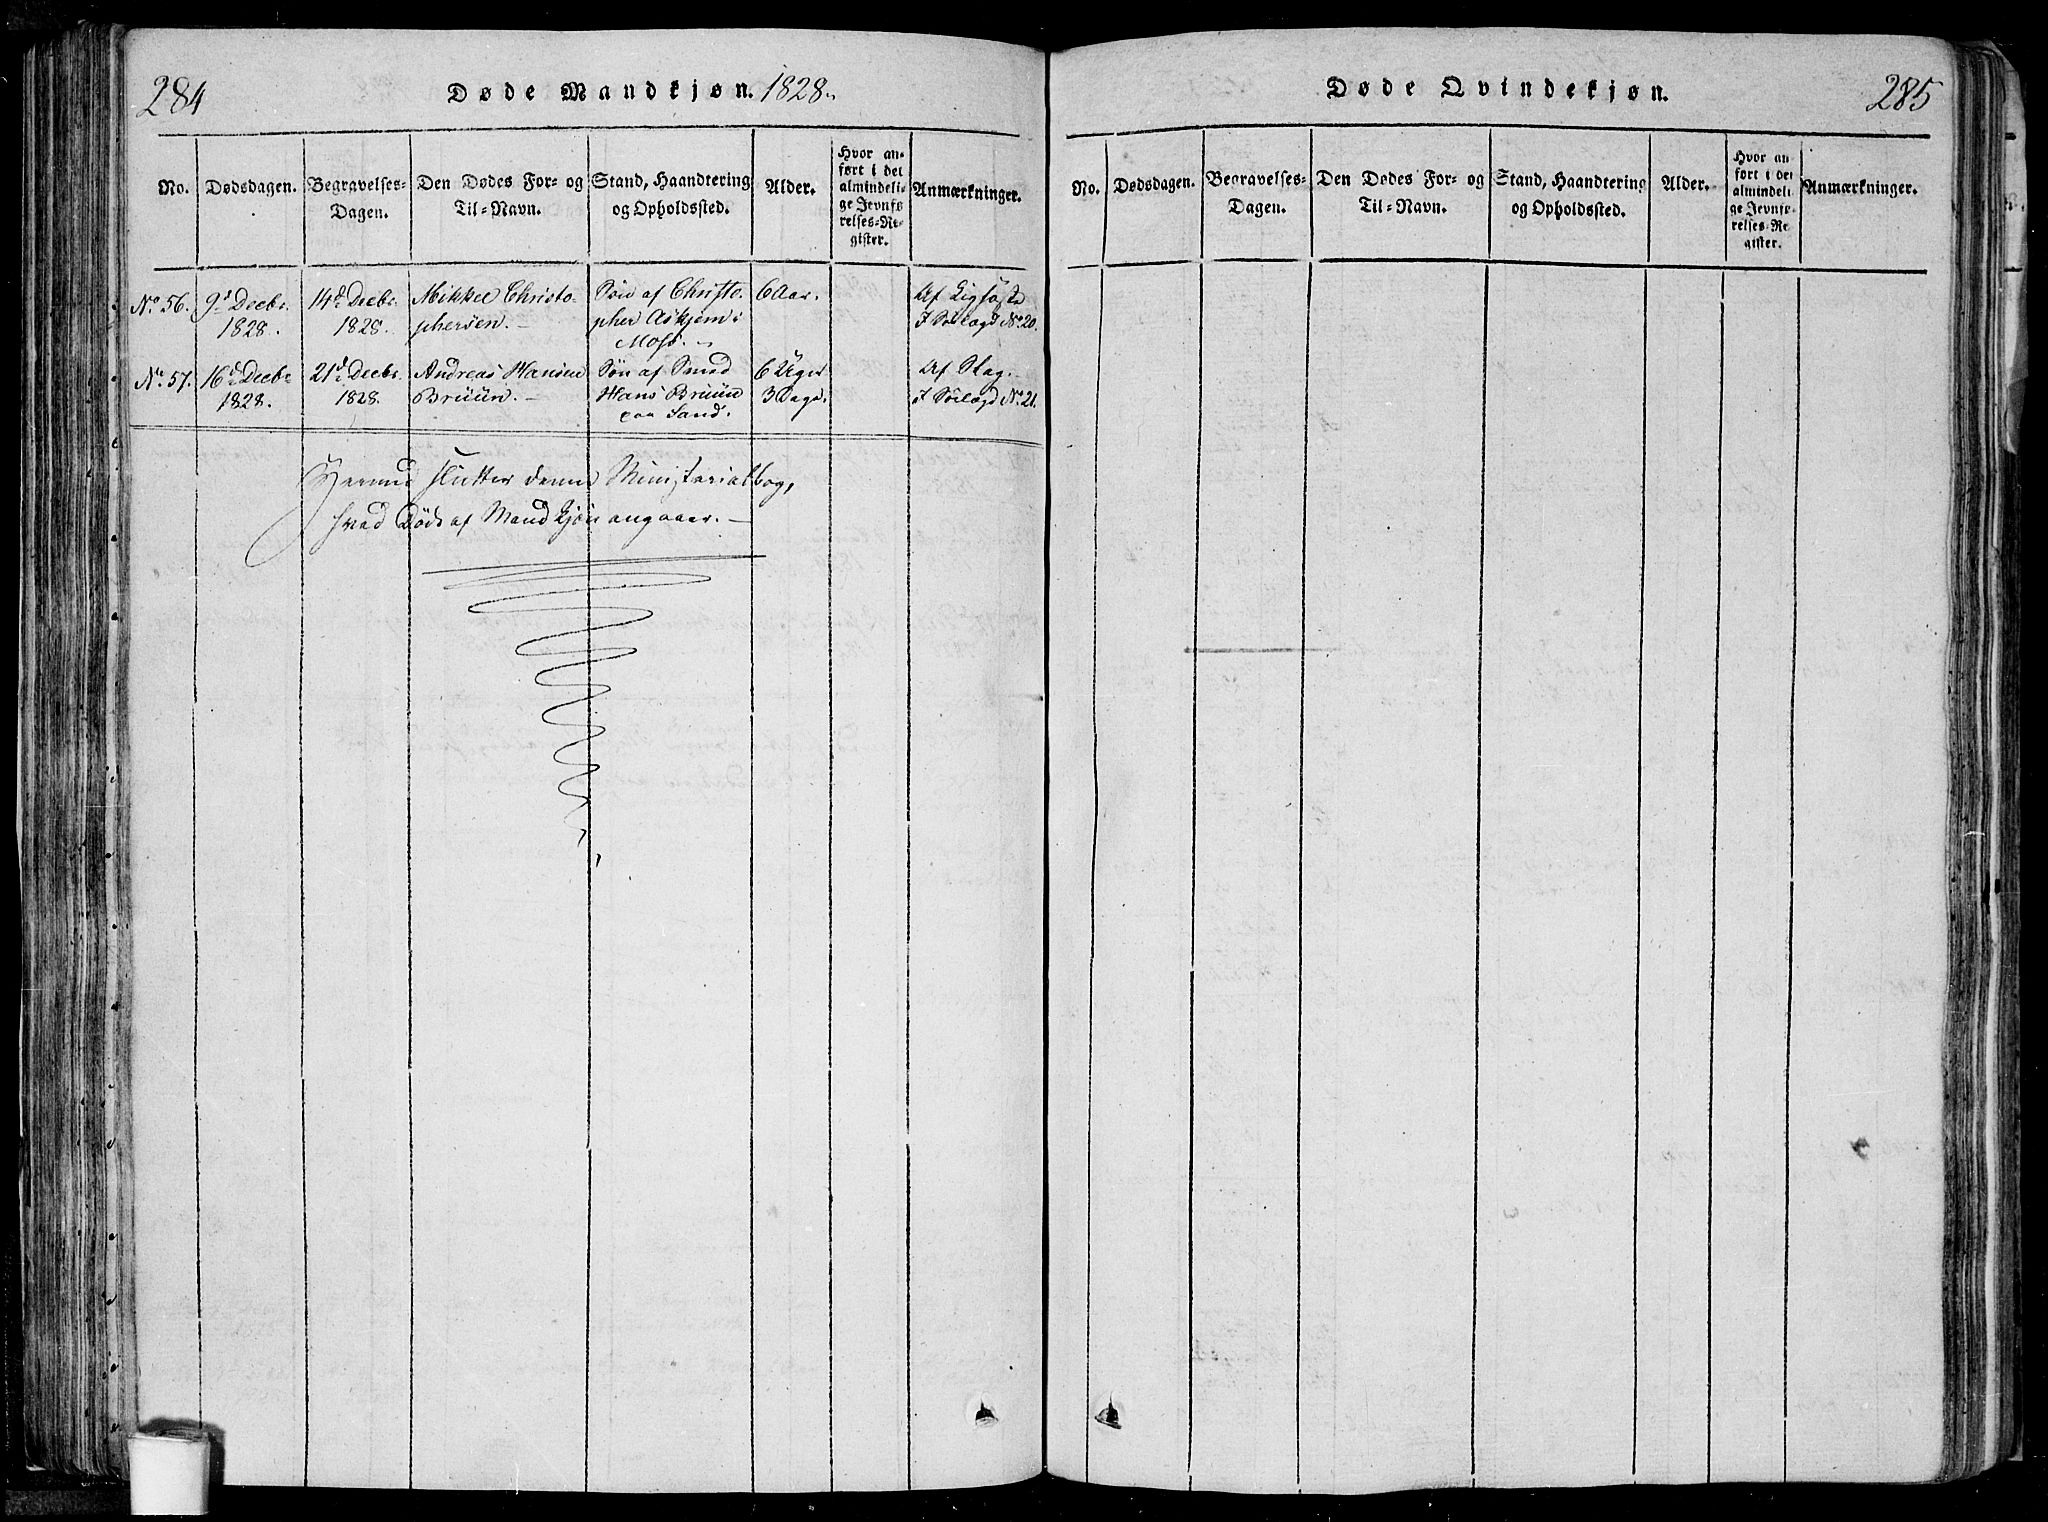 284
Døde Mandkjøn. 1828.
No.
Dødsdagen.
Begravelses-
Dagen.
Den Dødes For- og
Til-Navn.
Stand, Haandtering
og Opholdssted.
Alder.
Hvor an-
ført i det
almindeli-
ge Jevnfø-
relses-Re-
gister.
Anmærkninger.
No. 56.
9d Decbr.
1828.
14d Decbr.
1828.
Mikkel Christo-
phersen.
Søn af Christo-
pher Askjem i
Moss.
6 Aar.
I Søelægd No. 20.
No. 57.
16d Decbr
1828.
21d Decbr.
1828.
Andreas Hansen
Bruun.
Søn af
Hans Bruun
paa Sand.
6 Uger
3 Dage.
Af Slag.
I Søelægd No. 21.
Hermed slutter denne Ministerialbog,
hvad Døde af Mandkjøn angaaer.
Døde Qvindekjøn.
285
No.
Dødsdagen.
Begravelses-
Dagen.
Den Dødes For- og
Til-Navn.
Stand, Haandtering
og Opholdssted.
Alder.
Hvor an
ført i det
almindeli
ge Jevnfø-
relses-Re
gister.
Anmærkninger.